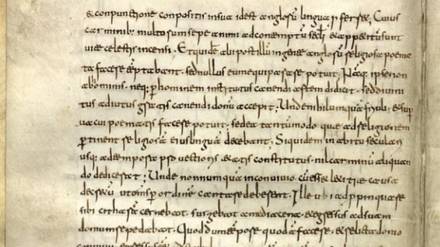 & conpunctione conpositis in sua id est anglorum lingua proferret. Cuius
carminibus multorum saepe animi ad contemptum saeculi & appetitum sunt
uitae caelestis accensi. Et quidem & alii post illum in gente anglorum religiosa poema
ta facere temptabant sed nullus eum aequiparare potuit. Namque ipse non
ab hominibus neque per hominem institutus canendi artem didicit. sed diuini
tus adiutus gratis canendi donum accepit; Unde nihil umquam friuoli & super
uacui poematis facere potuit. sed ea tantummodo quae ad religionem
pertinent religiosam eius linguam decebant; Siquidem in habitu saeculari
usque ad tempora prouectioris aetatis constitutus. nil carminum aliquan
do didicerat; Unde nonnumquam in conuiuio cum esset laetitiae causa
decretum ut omnes per ordinem cantare deberent. Ille ubi adpropinquare
sibi citharam cernebat. surgebat a media caena & egressus ad suam
domum repedabat. Quod dum tempore quodam faceret. & relicta domo